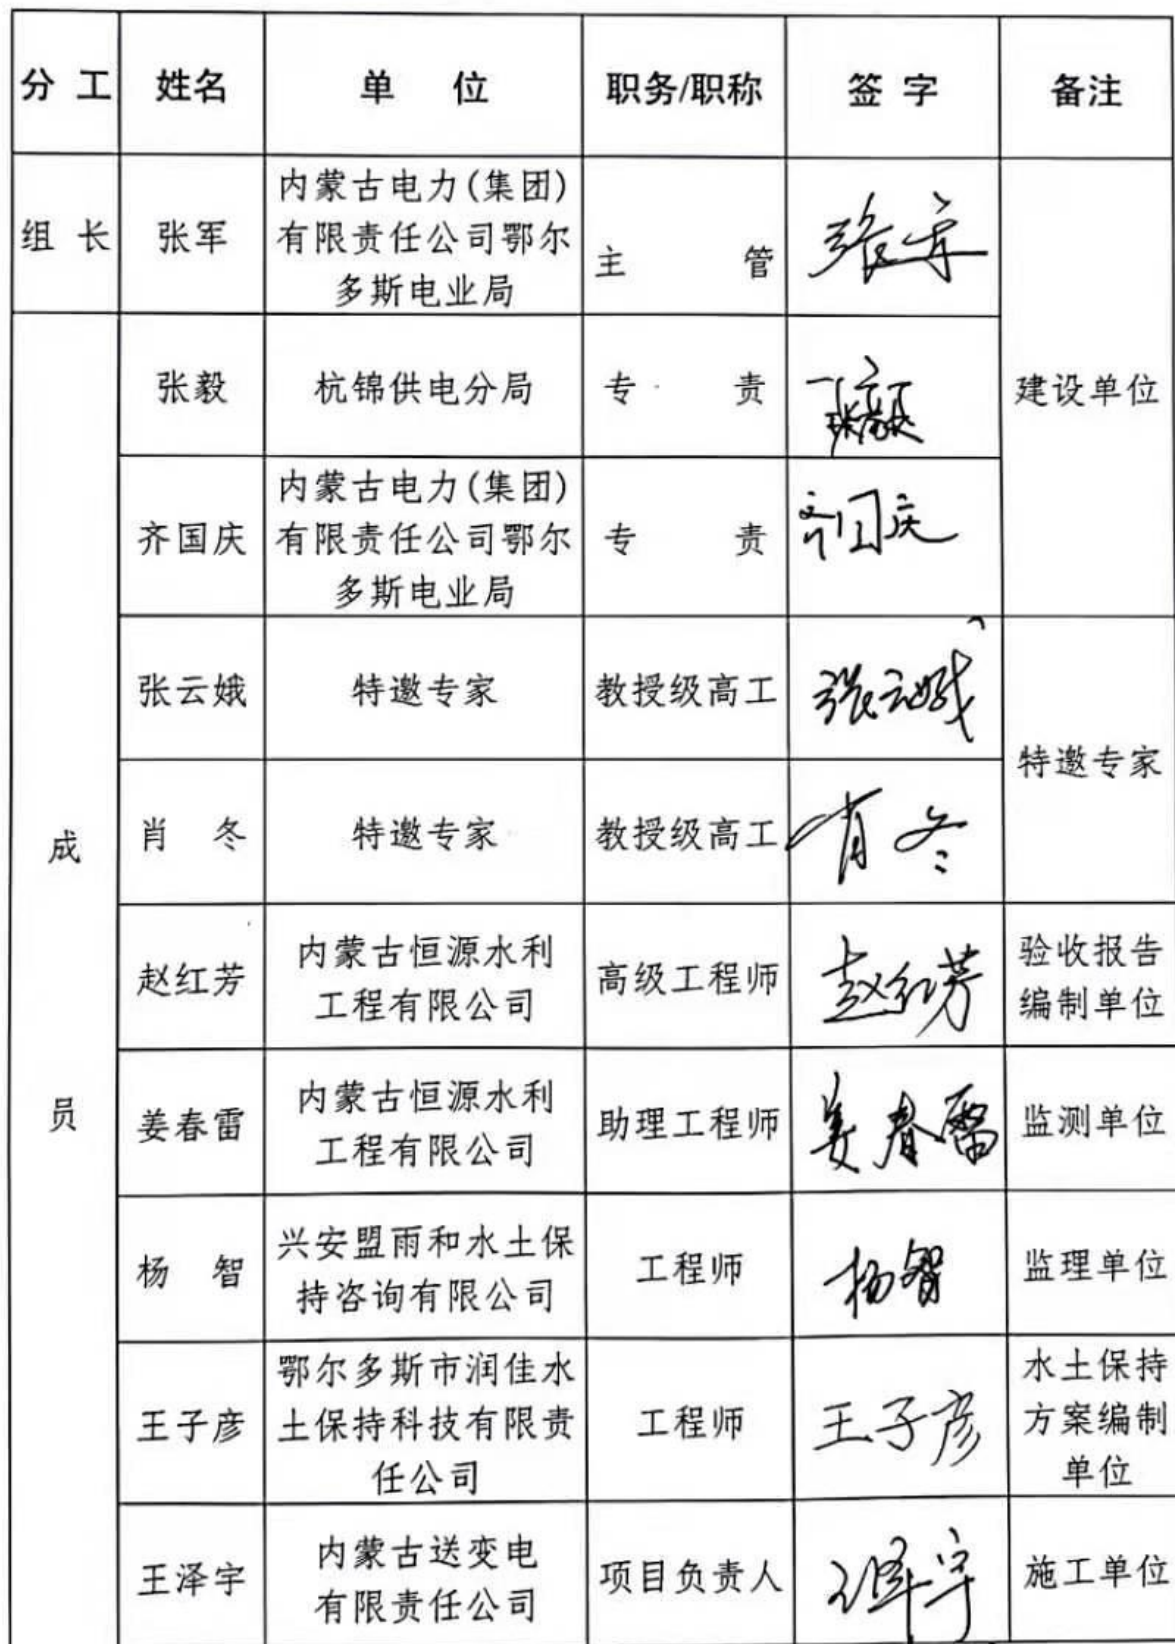 分 工 姓名 单 位 职务/职称 签 字 备注
组 长 张军 内蒙古电力(集团)
有限责任公司鄂尔
多斯电业局 主 管 张军 建设单位
成
员
张毅 杭锦供电分局 专 责 张毅
齐国庆 内蒙古电力(集团)
有限责任公司鄂尔
多斯电业局 专 责 齐国庆
张云娥 特邀专家 教授级高工 张云娥 特邀专家
肖 冬 特邀专家 教授级高工 肖冬
赵红芳 内蒙古恒源水利
工程有限公司 高级工程师 赵红芳 验收报告
编制单位
姜春雷 内蒙古恒源水利
工程有限公司 助理工程师 姜春雷 监测单位
杨 智 兴安盟雨和水土保
持咨询有限公司 工程师 杨智 监理单位
王子彦 鄂尔多斯市润佳水
土保持科技有限责
任公司 工程师 王子彦 水土保持
方案编制
单位
王泽宇 内蒙古送变电
有限责任公司 项目负责人 王泽宇 施工单位